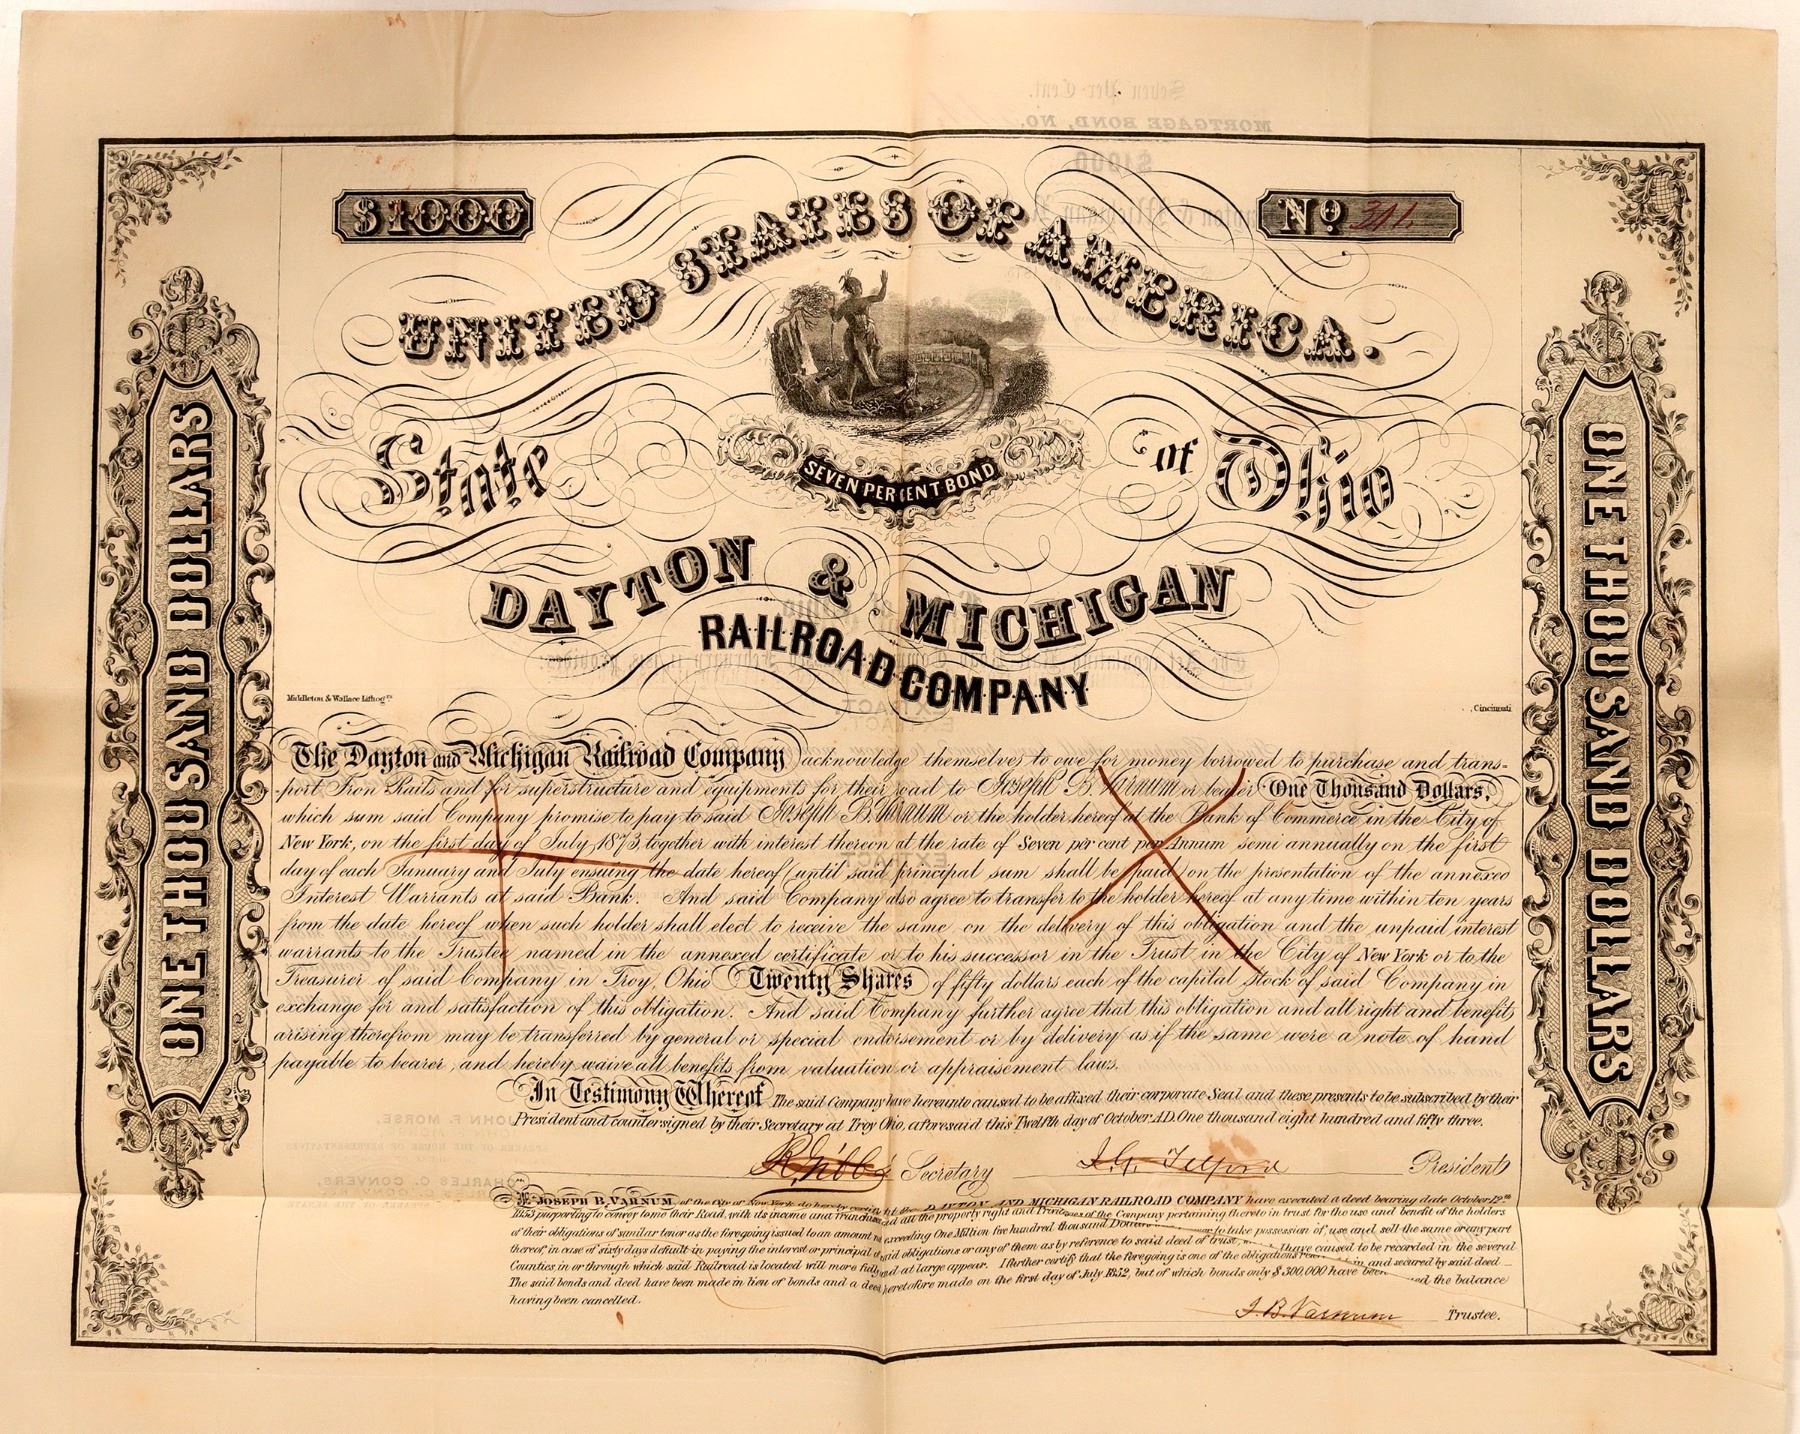 $1000
Nº 311.
UNITED STATES OF AMERICA.
SEVEN PER CENT BOND
State of Ohio
DAYTON & MICHIGAN
RAILROAD COMPANY
ONE THOUSAND DOLLARS
ONE THOUSAND DOLLARS
Middleton & Wallace Lithogrs
Cincinnati
The Dayton and Michigan Railroad Company acknowledge themselves to owe for money borrowed to purchase and trans-
-port Iron Rails and for superstructure and equipments for their road to Joseph B. Varnum or bearer One Thousand Dollars,
which sum said Company promise to pay to said Joseph B. Varnum or the holder hereof at the Bank of Commerce in the City of
New York, on the first day of July 1873, together with interest thereon at the rate of Seven per cent per Annum semi annually on the first
day of each January and July ensuing the date hereof (until said principal sum shall be paid) on the presentation of the annexed
Interest Warrants at said Bank. And said Company also agree to transfer to the holder hereof at any time within ten years
from the date hereof when such holder shall elect to receive the same, on the delivery of this obligation and the unpaid interest
warrants to the Trustee named in the annexed certificate or to his successor in the Trust in the City of New York or to the
Treasurer of said Company in Troy, Ohio Twenty Shares of fifty dollars each of the capital Stock of said Company in
exchange for and satisfaction of this obligation. And said Company further agree that this obligation and all right and benefits
arising therefrom may be transferred by general or special endorsement or by delivery as if the same were a note of hand
payable to bearer, and hereby waive all benefits from valuation or appraisement laws.
In Testimony Whereof The said Company have hereunto caused to be affixed their corporate Seal and these presents to be subscribed by their
President and countersigned by their Secretary at Troy Ohio, aforesaid this Twelfth day of October, A.D. One thousand eight hundred and fifty three.
Secretary J. G. Telford President
I, JOSEPH B. VARNUM, of the City of New York do hereby certify that the DAYTON AND MICHIGAN RAILROAD COMPANY have executed a deed bearing date October 12th
1853 purporting to convey to me their Road, with its income and franchises and all the property right and Privileges of the Company pertaining thereto in trust for the use and benefit of the holders
of their obligations of similar tenor as the foregoing issued to an amount not exceeding One Million five hundred thousand Dollars to take possession of, use and sell the same or any part
thereof, in case of sixty days default in paying the interest or principal of said obligations or any of them as by reference to said deed of trust, I have caused to be recorded in the several
Counties, in or through which said Railroad is located will more fully and at large appear. I further certify that the foregoing is one of the obligations in and secured by said deed
The said bonds and deed have been made in lieu of bonds and a deed heretofore made on the first day of July 1852, but of which bonds only $300,000 have been and the balance
having been cancelled.
J. B. Varnum Trustee.